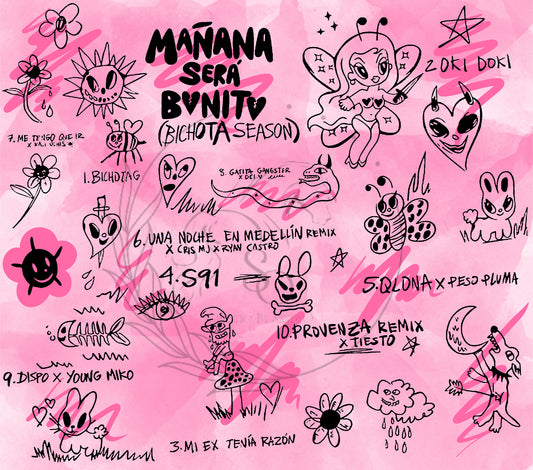 MAÑANA
SERÁ
BONITO
(BICHOTA SEASON)
2 OKI DOKI
7. ME TENGO QUE IR
X KALI UCHIS
1. BICHOTAG
8. GATITA GANGSTER
X DEI V
6. UNA NOCHE EN MEDELLÍN REMIX
X CRIS MJ X RYAN CASTRO
4. S91
5. QLONA X PESO PLUMA
10. PROVENZA REMIX
X TIESTO
9. DISPO X YOUNG MIKO
3. MI EX TENÍA RAZÓN